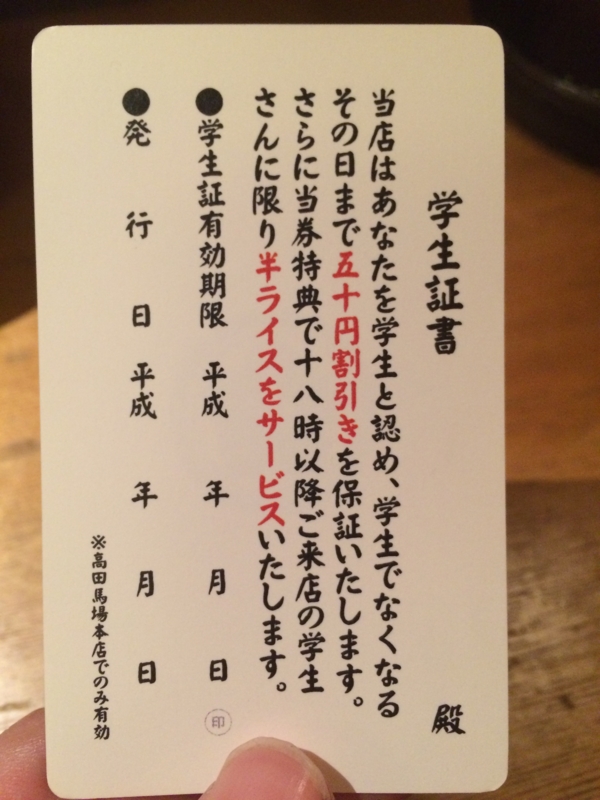 学生証書 殿
当店はあなたを学生と認め、学生でなくなる
その日まで五十円割引きを保証いたします。
さらに当券特典で十八時以降ご来店の学生
さんに限り半ライスをサービスいたします。
●学生証有効期限 平成 年 月 日 印
●発行日 平成 年 月 日
※高田馬場本店でのみ有効